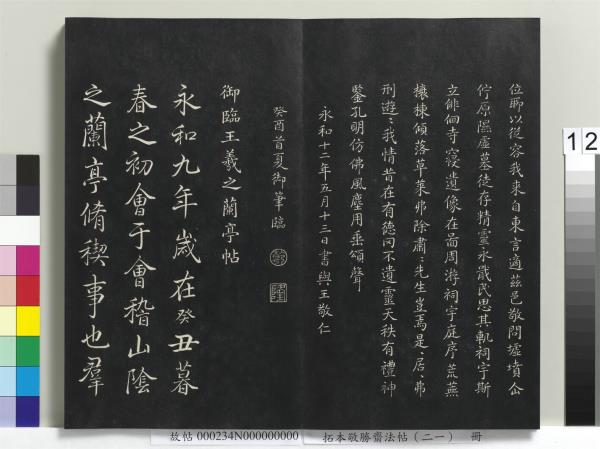 位聊以從容我來自東言適茲邑敬問墟墳企
佇原隰虛墓徒存精靈永戢民思其軌祠宇斯
立徘徊寺寢遺像在啚周游祠宇庭序荒蕪
榱棟傾落草萊弗除肅:先生豈焉是:居:弗
刑遊:我情昔在有德罔不遺靈天秩有禮神
鑒孔明仿佛風塵用垂頌聲
永和十二年五月十三日書與王敬仁
癸酉首夏御筆臨
御臨王羲之蘭亭帖
永和九年歲在癸丑暮
春之初會于會稽山陰
之蘭亭脩稧事也羣
故帖 000234N000000000
拓本敬勝齋法帖(二一) 冊
12